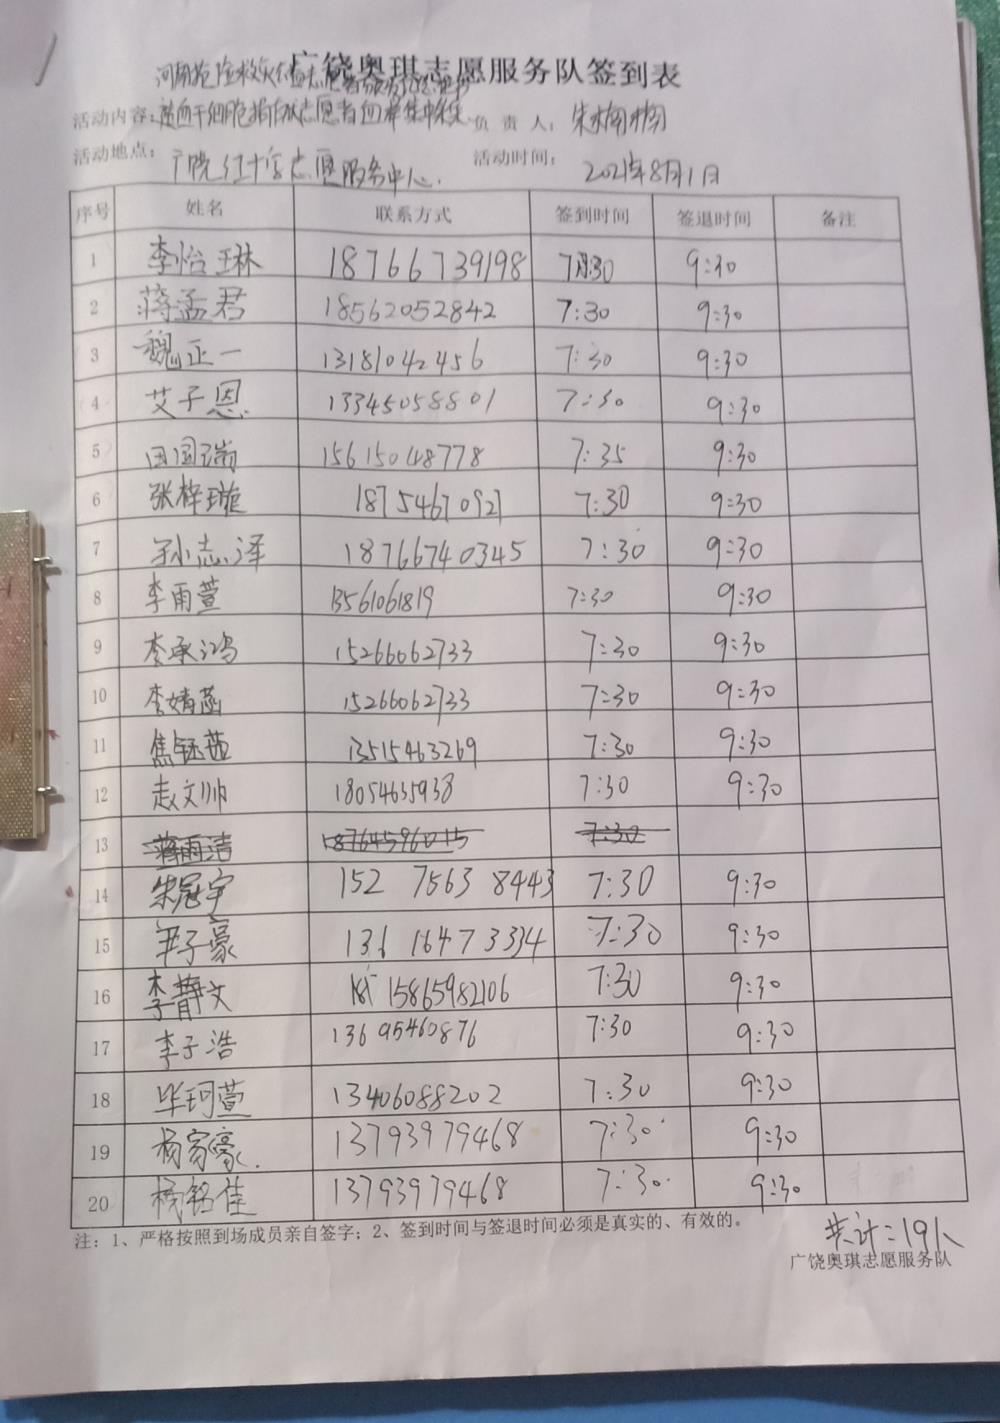 广饶奥琪志愿服务队签到表
河南抢险救灾
活动内容：造血干细胞捐献志愿者血样集中采集 负责人：朱
活动地点：广饶红十字志愿服务中心 活动时间：2021年8月1日
序号 姓名 联系方式 签到时间 签退时间 备注
1 李怡琳 18766739198 7:30 9:30
2 蒋孟君 18562052842 7:30 9:30
3 魏正一 13181042456 7:30 9:30
4 艾子恩 13345058801 7:30 9:30
5 田国瑞 15615048778 7:35 9:30
6 张梓璇 18754670921 7:30 9:30
7 孙志泽 18766740345 7:30 9:30
8 李雨萱 13561061819 7:30 9:30
9 李承鸿 15266062733 7:30 9:30
10 李婧菡 15266062733 7:30 9:30
11 焦钰茹 13515463269 7:30 9:30
12 赵文帅 18054635938 7:30 9:30
13 蒋雨洁 18764596015 7:30
14 朱冠宇 152 7563 8443 7:30 9:30
15 尹子豪 136 1647 3334 7:30 9:30
16 李静文 15865982106 7:30 9:30
17 李子浩 13695460876 7:30 9:30
18 毕珂萱 13406088202 7:30 9:30
19 杨家豪 13793979468 7:30 9:30
20 杨铭佳 13793979468 7:30 9:30
注：1、严格按照到场成员亲自签字；2、签到时间与签退时间必须是真实的、有效的。
共计：19人
广饶奥琪志愿服务队